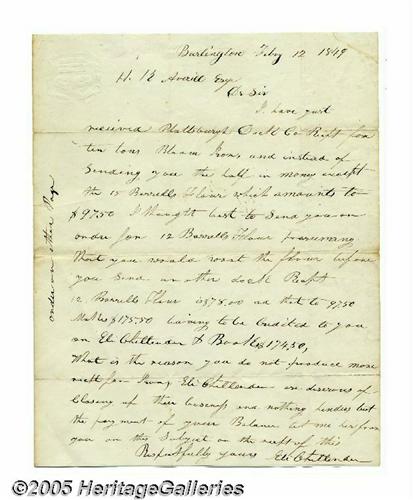 Burlington Feby 12 1849
H. K Averill Esqr
Dr Sir
I have just
received Plattsburgh Dock Co Rcpt for
ten tons Bloom Iron and instead of
Sending you the ball in money except
the 15 Barrells Flour which amounts to
$97.50 I thought best to Send you an
order for 12 Barrells Flour presuming
that you would want the flour before
you Send another dock Recpt
12 Barrells Flour is $78.00 ad that to 97.50
Makes $175.50 leaving to be credited to you
on Eli Chittenden Books $174.50,
What is the reason you do not produce more
rcpt for Iron, Eli Chittenden are desirous of
Closing up their business and nothing hinders but
the payment of your Balance let me her from
you on this Subject on the rcpt of this
Respectfully yours Eli Chittenden
order on other Page
©2005 HeritageGalleries